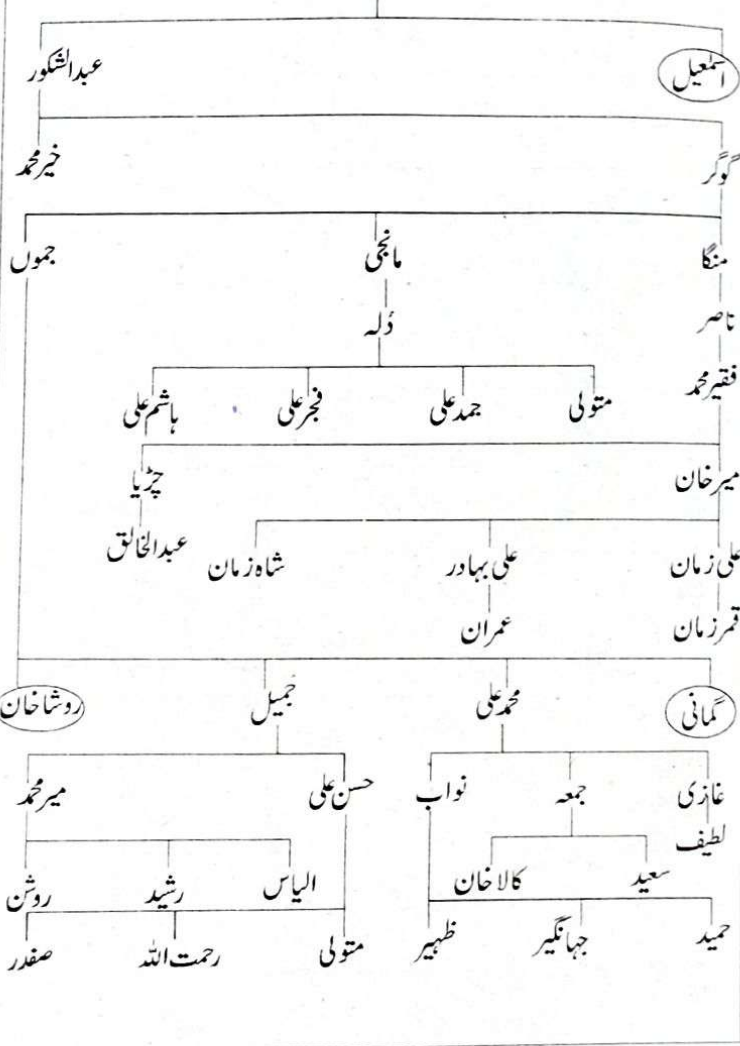 اسمٰعیل عبدالشکور
گوگر خیر محمد
منگا مانجی جموں
ناصر دُلہ
فقیر محمد
متولی جمد علی فجر علی ہاشم علی
میر خان چڑیا
علی زمان علی بہادر شاہ زمان عبدالخالق
قمر زمان عمران
گمانی محمد علی جمیل روشا خان
غازی جمعہ نواب حسن علی میر محمد
لطیف
سعید کالا خان الیاس رشید روشن
حمید جہانگیر ظہیر متولی رحمت اللہ صفدر